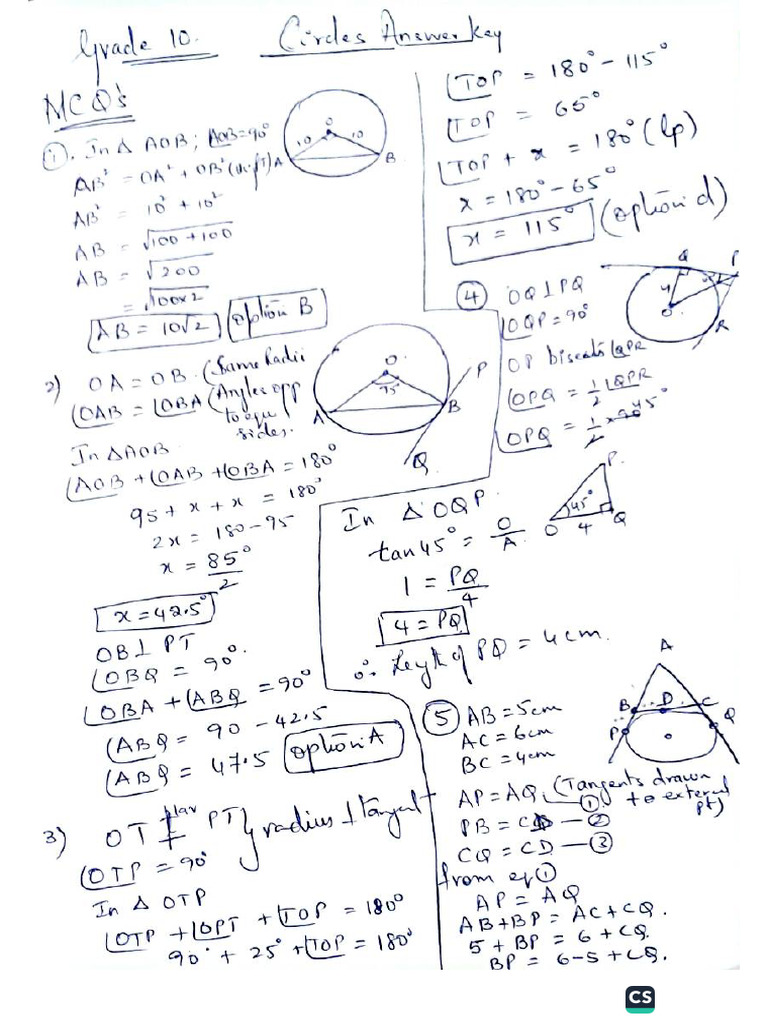 Grade 10. Circles Answer Key
MCQ's
①. In Δ AOB; ∠AOB=90°
AB² = OA² + OB² (
AB² = 10² + 10²
AB = √100+100
AB = √200
= √100×2
AB = 10√2 option B
O
10 10
A B
2) OA = OB. (Same Radii
∠OAB = ∠OBA (Angles opp
to equ
sides.
In ΔAOB.
∠AOB + ∠OAB + ∠OBA = 180°
95 + x + x = 180°
2x = 180-95
x = 85°/2
x = 42.5°
OB⊥ PT
∠OBQ = 90°.
∠OBA + ∠ABQ = 90°
∠ABQ = 90 - 42.5
∠ABQ = 47.5 option A
O
95°
A B
P
Q
3) OT ⊥lar PT} radius ⊥ tangent
∠OTP = 90°
In Δ OTP
∠OTP + ∠OPT + ∠TOP = 180°
90° + 25° + ∠TOP = 180°
∠TOP = 180° - 115°
∠TOP = 65°
∠TOP + x = 180° (lp)
x = 180° - 65°
x = 115° (option d)
④ OQ⊥PQ
∠OQP = 90°
OP bisects ∠QPR
∠OPQ = 1/2 ∠QPR
∠OPQ = 1/2 × 90° 45°
Q P
4
O
R
In Δ OQP.
tan45° = O/A
1 = PQ/4
4 = PQ
∴ Length of PQ = 4cm.
P.
45°
O 4 Q
⑤ AB = 5cm
AC = 6cm
BC = 4cm
AP = AQ (Tangents drawn
to external
pt)
①
PB = — ②
CQ = CD — ③
from eq ①
AP = AQ
AB + BP = AC + CQ.
5 + BP = 6 + CQ.
BP = 6-5 + CQ.
A
B D C
P Q
O
CS